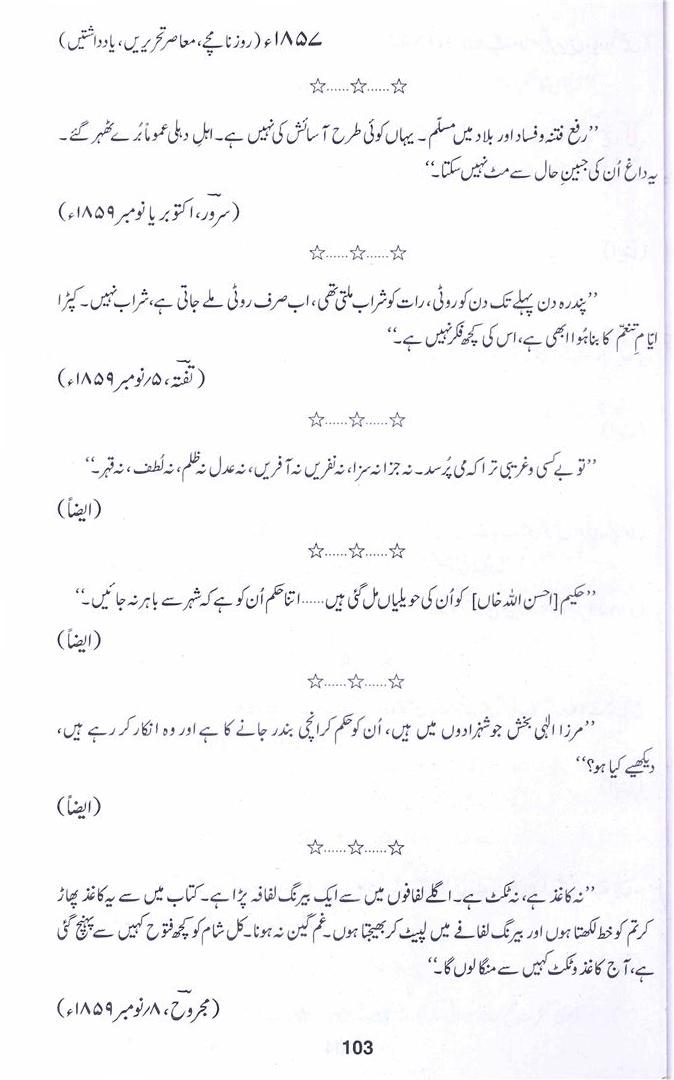 ۱۸۵۷ء (روزنامچے، معاصر تحریریں، یادداشتیں)
☆......☆......☆
’’رفع فتنہ و فساد اور بلاد میں مسلّم۔ یہاں کوئی طرح آسائش کی نہیں ہے۔ اہلِ دہلی عموماً بُرے ٹھہر گئے۔
یہ داغ اُن کی جبینِ حال سے مٹ نہیں سکتا۔‘‘
(سرور، اکتوبر یا نومبر ۱۸۵۹ء)
☆......☆......☆
’’پندرہ دن پہلے تک دن کو روٹی، رات کو شراب ملتی تھی، اب صرف روٹی ملے جاتی ہے، شراب نہیں۔ کپڑا
ایّامِ تنعّم کا بنا ہُوا ابھی ہے، اس کی کچھ فکر نہیں ہے۔‘‘
(تفتہ، ۵/نومبر ۱۸۵۹ء)
☆......☆......☆
’’تو بے کسی و غریبی ترا کہ می پُرسد۔ نہ جزا نہ سزا، نہ نفریں نہ آفریں، نہ عدل نہ ظلم، نہ لُطف، نہ قہر۔‘‘
(ایضاً)
☆......☆......☆
’’حکیم [احسن اللہ خاں] کو اُن کی حویلیاں مل گئی ہیں...... اتنا حکم اُن کو ہے کہ شہر سے باہر نہ جائیں۔‘‘
(ایضاً)
☆......☆......☆
’’مرزا الٰہی بخش جو شہزادوں میں ہیں، اُن کو حکم کرانچی بندر جانے کا ہے اور وہ انکار کر رہے ہیں،
دیکھیے کیا ہو؟‘‘
(ایضاً)
☆......☆......☆
’’نہ کاغذ ہے، نہ ٹکٹ ہے۔ اگلے لفافوں میں سے ایک بیرنگ لفافہ پڑا ہے۔ کتاب میں سے یہ کاغذ پھاڑ
کر تم کو خط لکھتا ہوں اور بیرنگ لفافے میں لپیٹ کر بھیجتا ہوں۔ غم گین نہ ہونا۔ کل شام کو کچھ فتوح کہیں سے پہنچ گئی
ہے، آج کاغذ و ٹکٹ کہیں سے منگا لوں گا۔‘‘
(مجروح، ۸/نومبر ۱۸۵۹ء)
103